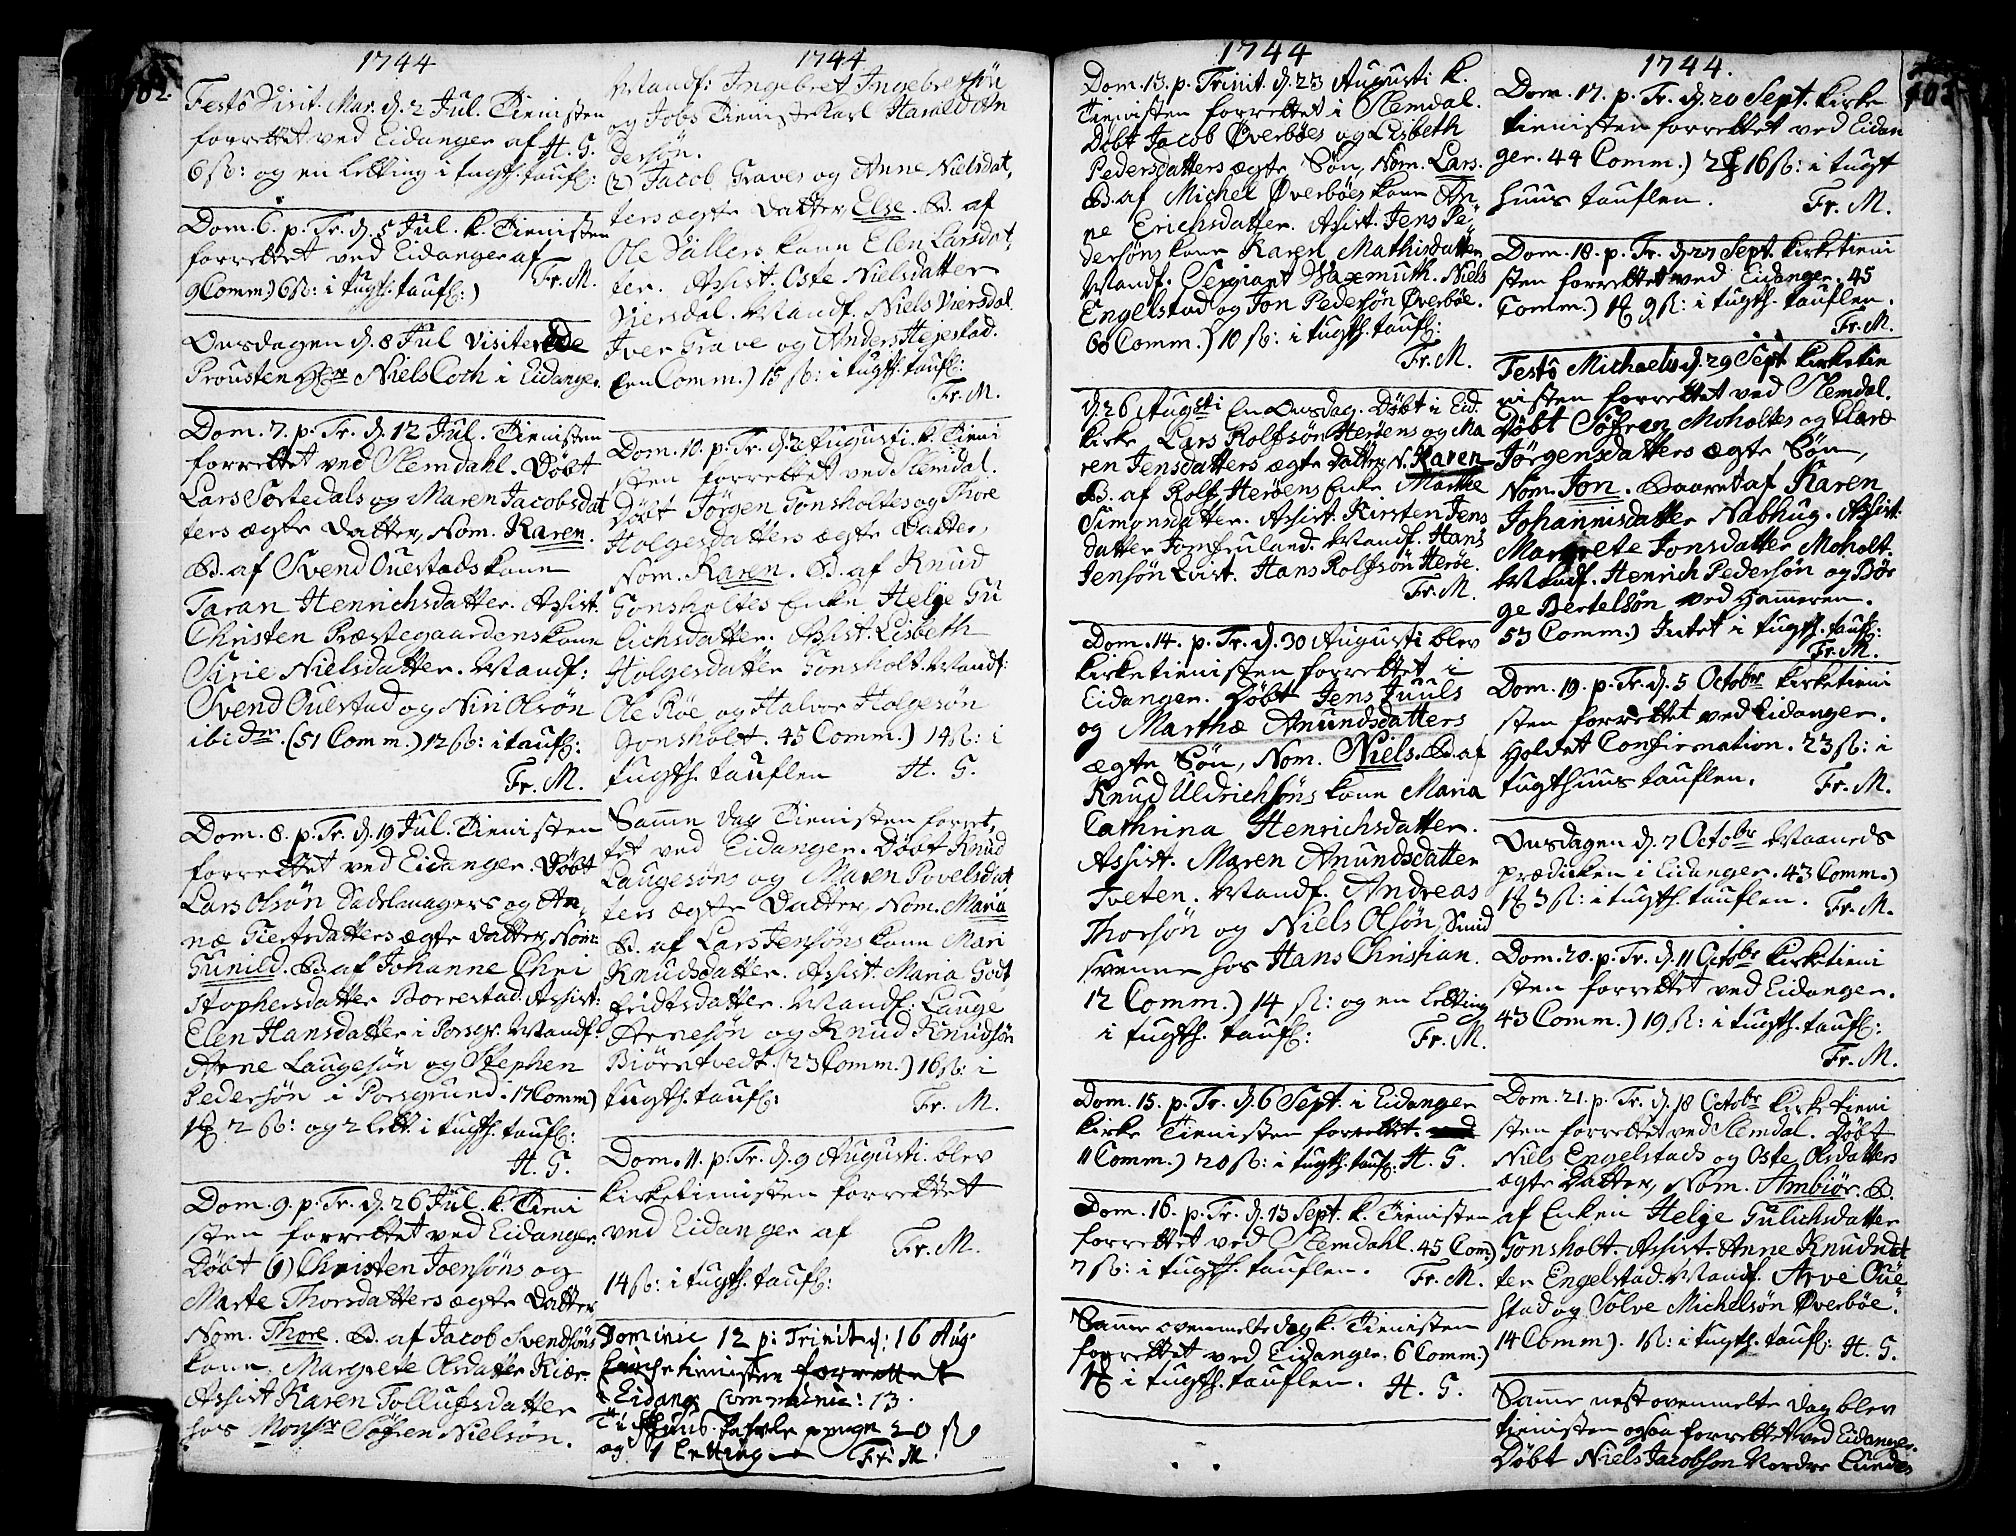 102
1744
Festô Visit. Mar. d. 2 Jul. Tienisten
forrettet ved Eidanger af H. G.
6 ß: og en letting i tugth. taufl:
Dom. 6. p. Tr. d. 5 Jul. k. Tienisten
forrettet ved Eidanger af
9 Comm.) 6 ß: i tugth. taufl:) Fr. M.
Onsdagen d. 8 Jul visiterede
Prousten Hr Niels Coth i Eidanger.
Dom. 7. p. Tr. d. 12 Jul. Tienisten
forrettet ved Slemdahl. Døbt
Lars Sortedals og Maren Jacobsdat
ters ægte datter, Nom. Karen.
B. af Svend Ouestads kone
Taran Henrichsdatter. Assist.
Christen Præstegaardens kone
Sirie Nielsdatter. Mandf:
Svend Ouestad og Niri Olsøn
ibidm. (51 Comm.) 12 ß: i taufl:
Fr. M.
Dom. 8. p. Tr. d. 19 Jul. Tienisten
forrettet ved Eidanger. Døbt
Lars Olsøn Sadelmagers og An
næ Giertsdatters ægte datter, Nom:
Gunild. B. af Johanne Chri
stophersdatter Borrestad. Assist:
Elen Hansdatter i Porsgr. Mandf:
Arne Laugesøn og Stephen
Pedersøn i Porsgrund. 17 Comm)
2 ß: og 2 lett. i tugth. taufl:
H. G.
Dom. 9. p. Tr. d. 26 Jul. k. Tieni
sten forrettet ved Eidanger.
Døbt (1) Christen Joensøns og
Marte Thorsdatters ægte Datter
Nom. Thore. B. af Jacob Svendsøns
kone, Margrete Olsdatter Kiær.
Assist Karen Tollufsdatter
hos Monsr Søfren Nielsøn.
1744
Mandf: Ingebret Ingebretsøn
og Jobs Tieniste Karl Harald An
dersøn.
(2) Jacob Graves og Anne Nielsdat,
ters ægte datter Else. B. af
Ole Sällers kone Elen Larsdat,
ter. Assist. Oste Nielsdatter
Viersdal. Mandf. Niels Viersdal
Iver Grave og Anders Hejestad.
Een Comm.) 15 ß: i tugth. taufl:
Fr. M.
Dom. 10. p. Tr. d. 2 Augusti. k. Tieni
sten forrettet ved Slemdal.
Døbt Jørgen Gonsholtes og Thore
Holgesdatters ægte Datter,
Nom. Karen. B. af Knud
Gonsholtes Enke Helje Gu
lichsdatter. Assist. Lisbeth
Holgesdatter Gonsholt. Mandf:
Ole Røe og Halvor Holgesøn
Gonsholt. 45 Comm.) 14 ß: i
tugth. tauflen H. G.
Samme dag Tienisten forret,
tet ved Eidanger. Døbt Knud
Laugesøns og Maren Povelsdat
ters ægte Datter, Nom. Maria
B. af Lars Jensøns kone Mari
Knudsdatter. Assist. Maria Godt
fridtsdatter. Mandf: Lauge
Arnesøn og Knud Knudsøn
Biørntvedt. (23 Comm.) 16 ß: i
tugth. taufl: Fr. M.
Dom. 11. p. Tr. d. 9 Augusti. blev
kirketienisten forrettet
ved Eidanger af
Fr. M.
14 ß: i tugth. taufl:
Dominic 12 p: Trinit d: 16 Aug.
tienisten forrettet
i Eidang. Communic: 13.
Tugthuus tafvle penge 20 ß
og 1 letting Fr. M.
1744
Dom. 13. p. Trinit. d. 23 Augusti k.
Tienisten forrettet i Slemdal.
Døbt Jacob Øverbøes og Lisbeth
Pedersdatters ægte Søn, Nom. Lars.
B. af Michel Øverbøes kone An,
ne Erichsdatter. Assist. Jens Pe
dersøns kone Karen Mathisdatter
Mandf. Sergiant Waxmuth. Niels
Engelstad og Jon Pedersøn Øverbøe.
68 Comm.) 10 ß: i tugth. taufl:
Fr. M.
d. 26 Augsti En Onsdag. Døbt i Eid.
kirke, Lars Rolfsøn Herøens og Ma
ren Jensdatters ægte datter N. Karen
B. af Rolf Herøens Enke Marthe
Simonsdatter. Assist. Kirsten Jens
datter Jomfruland. Mandf. Hans
Jensøn Qvist. Hans Rolfsøn Herøe.
Fr. M.
Dom. 14. p. Tr. d. 30 Augusti blev
kirketienisten forrettet i
Eidanger. Døbt Jens Juuls
og Marthæ Anundsdatters
ægte Søn, Nom. Niels. B. af
Knud Uldrichsøns kone Maria
Cathrina Henrichsdatter.
Assist. Maren Anundsdatter
Tveten. Mandf. Andreas
Thorsøn og Niels Olsøn, Smid
svenne hos Hans Christian.
12 Comm.) 14 ß: og en letting
i tugth. taufl: Fr. M.
Dom. 15. p. Tr. d. 6 Sept. i Eidanger
kirke Tienisten forrettet.
11 Comm.) 20 ß: i tugth. taufl: H. G.
Dom. 16. p. Tr. d. 13 Sept. k. Tienisten
forrettet ved Slemdahl. 45 Com)
7 ß: i tugth. tauflen. Fr. M.
Samme ovenmelte dag k. Tienisten
forrettet ved Eidanger. 6 Comm.)
i tugth. tauflen. H. G.
1744.
103
Dom. 17. p. Tr. d. 20 Sept. kirke
tienisten forrettet ved Eidan
ger. 44 Comm.) 2 16 ß: i tugt
huus tauflen. Fr. M.
Dom. 18. p. Tr. d. 27 Sept. kirketieni
sten forrettet ved Eidanger. 45
Comm.) 9 ß: i tugth. tauflen.
Fr. M.
Festô Michaelis d. 29 Sept kirketie
nisten forrettet ved Slemdal.
Døbt Søfren Moholtes og Claræ
Jørgensdatters ægte Søn,
Nom. Jon. Baaret af Karen
Johannisdatter Nabhug. Assist.
Margrete Jonsdatter Moholt.
Mandf. Henrich Pedersøn og Bør
ge Bertelsøn ved Hammeren.
53 Comm.) Intet i tugth. taufl:
Fr. M.
Dom. 19. p. Tr. d. 5 Octobr kirketieni
sten forrettet ved Eidanger.
Holdet Confirmation. 23 ß: i
tugthuus tauflen. Fr. M.
Onsdagen d. 7 Octobr Maaneds
prædicken i Eidanger. 43 Comm.)
3 ß: i tugth. tauflen. Fr. M.
Dom. 20. p. Tr. d. 11 Octobr kirketieni
sten forrettet ved Eidanger.
43 Comm.) 19 ß: i tugth. taufl:
Fr. M.
Dom. 21. p. Tr. d. 18 Octobr kirketieni
sten forrettet ved Slemdal. Døbt
Niels Engelstads og Oste Olsdatters
ægte Datter, Nom. Ambiør. B.
af Enken Helje Gulichsdatter
Gonsholt. Assist. Anne Knudsdat
ter Engelstad. Mandf. Arve Oue
stad og Solve Michelsøn Øverbøe.
14 Comm). 1 ß: i tugth. taufl: H. G.
Samme nest ovenmelte dag blev
tienisten ogsaa forrettet ved Eidanger.
Døbt Niels Jacobsøn Nordre Lundes